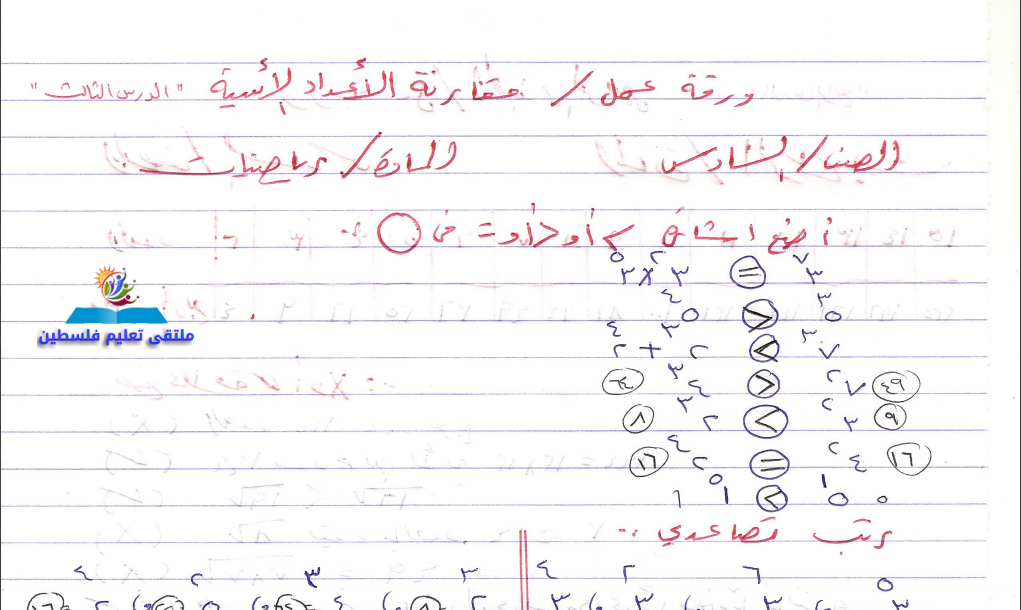 ورقة عمل / مقارنة الأعداد الأسية "الدرس الثالث"
الصف / السادس المادة / رياضيات
أضع إشارة > أو < أو = في ○ :-
٣^٧ = ٣^٢ × ٣^٥
٥^٣ > ٥^٤
٧^٣ < ٢^٣ + ٢^٤
٤٩ ٧^٢ > ٤^٣ ٦٤
٩ ٣^٢ < ٢^٣ ٨
١٦ ٤^٢ = ٢^٤ ١٦
٥ ٥^١ < ١^٥ ١
رتب تصاعدي :-
ملتقى تعليم فلسطين